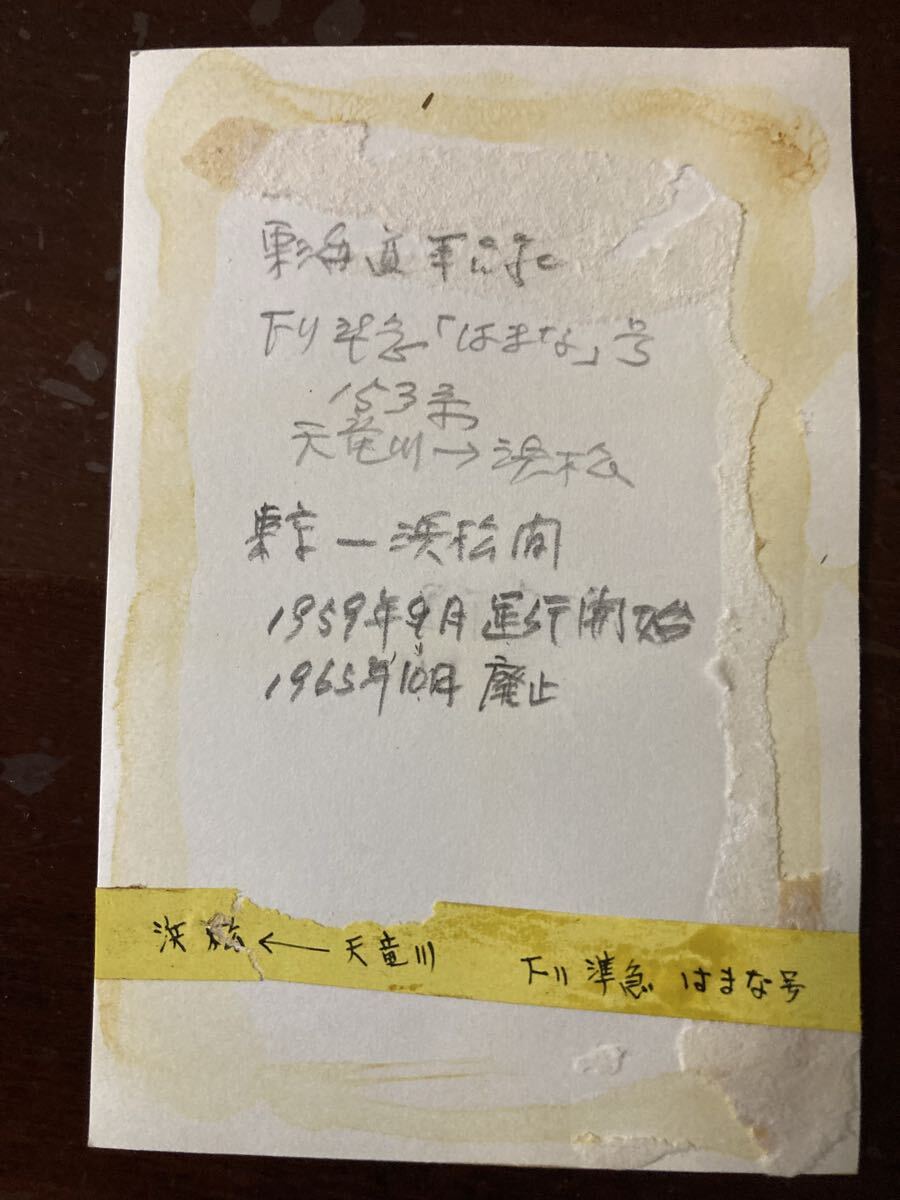 東海道本線
下り準急「はまな」号
153系
天竜川→浜松
東京ー浜松間
1959年9月運行開始
1965年10月廃止
浜松←天竜川 下り準急 はまな号